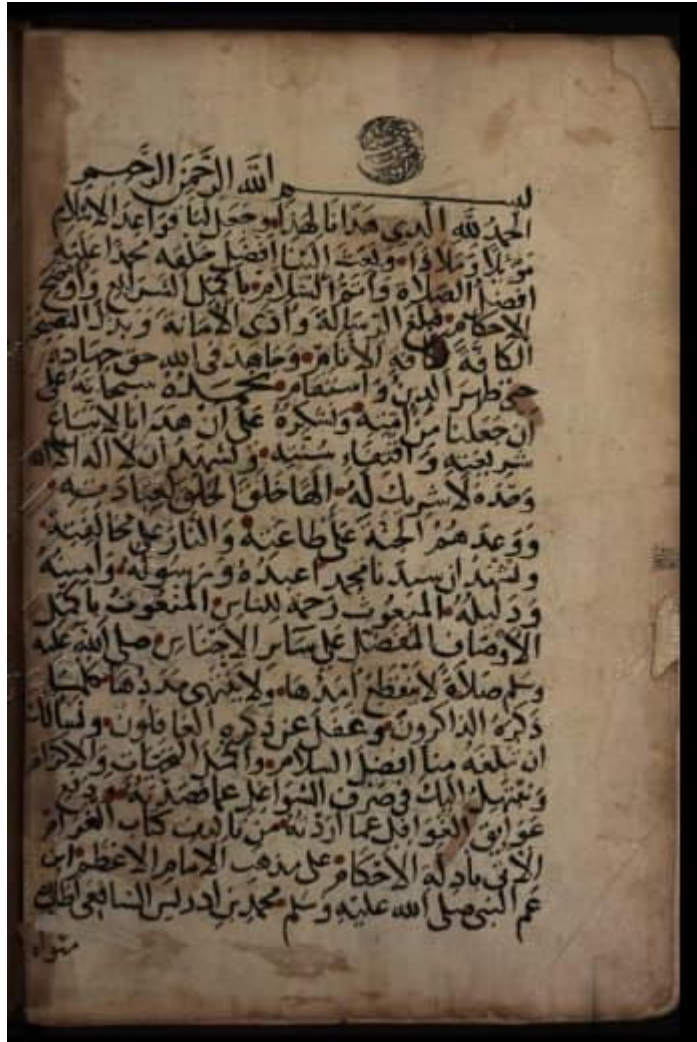 بسم الله الرحمن الرحيم
الحمد لله الذي هدانا لهذا وجعل لنا قواعد الاسلام
موئلا وملاذا وبعث الينا افضل خلقه محمدا عليه
افضل الصلاة واتم السلام باكمل الشرايع واوضح
الاحكام فبلغ الرسالة وادى الامانة وبذل النصيحة
الكافة كافة الانام وجاهد في الله حق جهاده
حتى ظهر الدين واستقام نحمده سبحانه على
ان جعلنا من امته ونشكره على ان هدانا لاتباع
شريعته واقتفاء سنته ونشهد ان لا اله الا الله
وحده لا شريك له الها خلق الخلق لعبادته
ووعدهم الجنة على طاعته والنار على مخالفته
ونشهد ان سيدنا محمدا عبده ورسوله وامينه
ودليله المبعوث رحمة للناس المنعوت باكمل
الاوصاف المفضل على ساير الاجناس صلى الله عليه
وسلم صلاة لا ينقطع امدها ولا ينتهي مددها كلما
ذكره الذاكرون وغفل عن ذكره الغافلون ونسالك
ان تبلغه منا افضل السلام واكمل التحيات والاكرام
ونبتهل اليك في صرف الشواغل عما قصدته ودفع
عوايق العوافل عما اردته من تاليف كتاب
الاتي بادلة الاحكام على مذهب الامام الاعظم ابن
عم النبي صلى الله عليه وسلم محمد بن ادريس الشافعي
مثواه